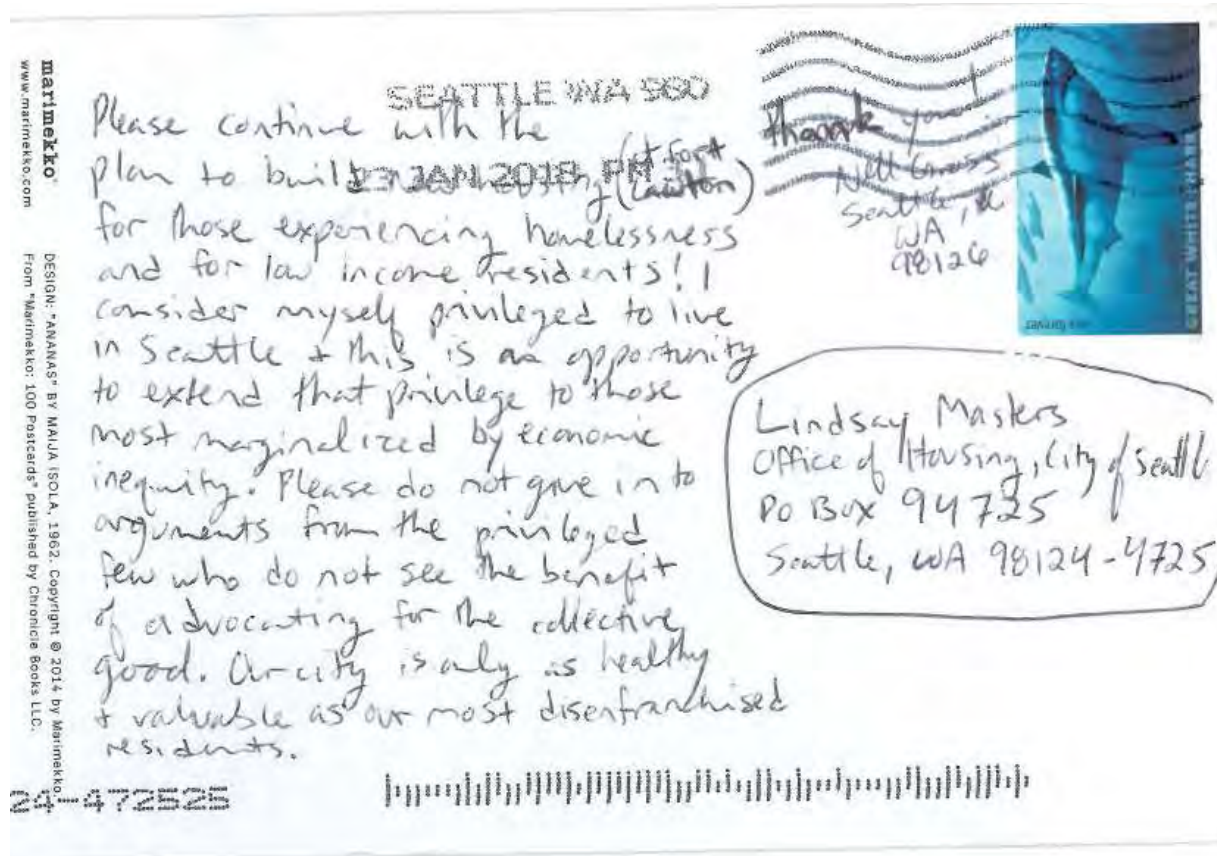 marimekko®
www.marimekko.com
DESIGN: "ANANAS" BY MAIJA ISOLA, 1962. Copyright © 2014 by Marimekko.
From "Marimekko: 100 Postcards" published by Chronicle Books LLC.
SEATTLE WA 980
23 JAN 2018 PM
Please continue with the
plan to build housing (at Fort Lawton)
for those experiencing homelessness
and for low income residents! I
consider myself privileged to live
in Seattle + this is an opportunity
to extend that privilege to those
most marginalized by economic
inequity. Please do not give in to
arguments from the privileged
few who do not see the benefit
of advocating for the collective
good. Our city is only as healthy
+ valuable as our most disenfranchised
residents.
Thank you!
Nell Gross
Seattle,
WA
98126
GREAT WHITE SHARK
forever
Lindsay Masters
Office of Housing, City of Seattl
PO Box 94725
Seattle, WA 98124-4725
24-472525